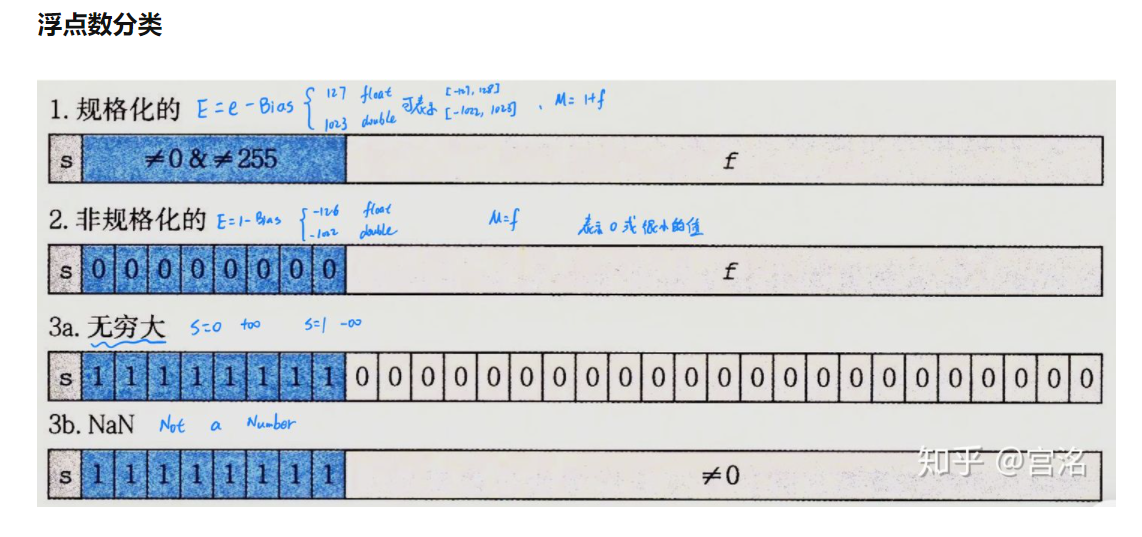 浮点数分类
1. 规格化的 E = e - Bias { 127 float 可表示 [-127, 128] 、 M = 1+f
1023 double [-1022, 1023]
s ≠0 & ≠255 f
2. 非规格化的 E=1-Bias { -126 float M=f 表示 0 或 很小的值
-1022 double
s 0 0 0 0 0 0 0 0 f
3a. 无穷大 s=0 +∞ s=1 -∞
s 1 1 1 1 1 1 1 1 0 0 0 0 0 0 0 0 0 0 0 0 0 0 0 0 0 0 0 0 0 0 0
3b. NaN Not a Number
s 1 1 1 1 1 1 1 1 ≠0
知乎 @宫洺